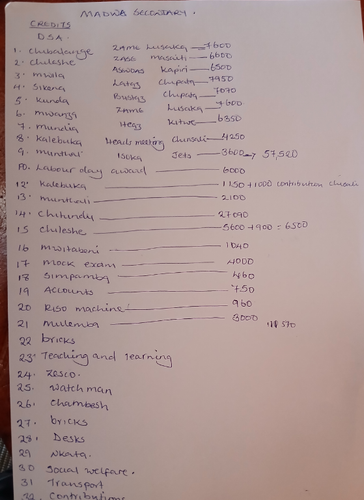 MADWA SECONDARY.
CREDITS
D.S.A.
1. Chibalange ZAME Lusaka — 7600
2. Chileshe ZASE Masaiti — 6600
3. Mwila Aswons Kapiri — 6500
4. Sikena Lataz Chipata — 7950
5. Kunda Bustaz Chipata — 7070
6. Mwanza ZAME Lusaka — 7600
7. Mundia Hegz Kitwe — 6350
8. Kalebuka Heads meeting Chinsali — 4250
9. Munthal Isoka Jets — 3600 → 57,520
10. Labour day award — 6000
12. Kalebuka — 1150 + 1000 contribution
13. Munthali — 2100
14. Chitundu — 27090
15 Chileshe — 5600 + 900 = 6500
16 Mwitabeni — 1040
17 Mock exam — 4000
18 Simpamba — 460
19 Accounts — 750
20 Riso machine — 960
21 Mulemba — 3000
22 bricks
23. Teaching and learning
24. Zesco.
25. Watchman
26. Chambesh
27. bricks
28. Desks
29 Nkata.
30 Social welfare.
31 Transport
32. Contributions